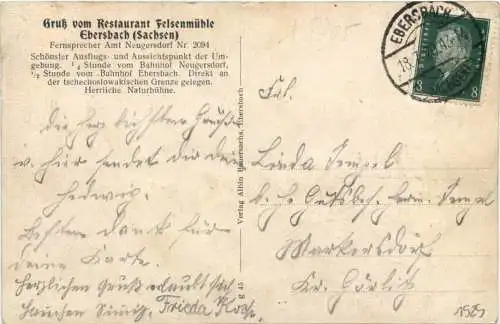 Gruß vom Restaurant Felsenmühle
Ebersbach (Sachsen)
Fernsprecher Amt Neugersdorf Nr. 2094
Schönster Ausflugs- und Aussichtspunkt der Um-
gebung. ¼ Stunde vom Bahnhof Neugersdorf,
½ Stunde vom Bahnhof Ebersbach. Direkt an
der tschechoslowakischen Grenze gelegen.
Herrliche Naturbühne.
Die herzlichsten Grüße
v. hier sendet dir deine
Hedwig.
Besten Dank für
deine Karte.
Herzlichen Gruß erlaubt sich
Frieda
Verlag Albin Bauersachs, Ebersbach
g 45
EBERSBACH
8 8
Frl.
Linda Tempel
b. H. Gutsbes. Herm. Tempel
Markersdorf
Kr. Görlitz